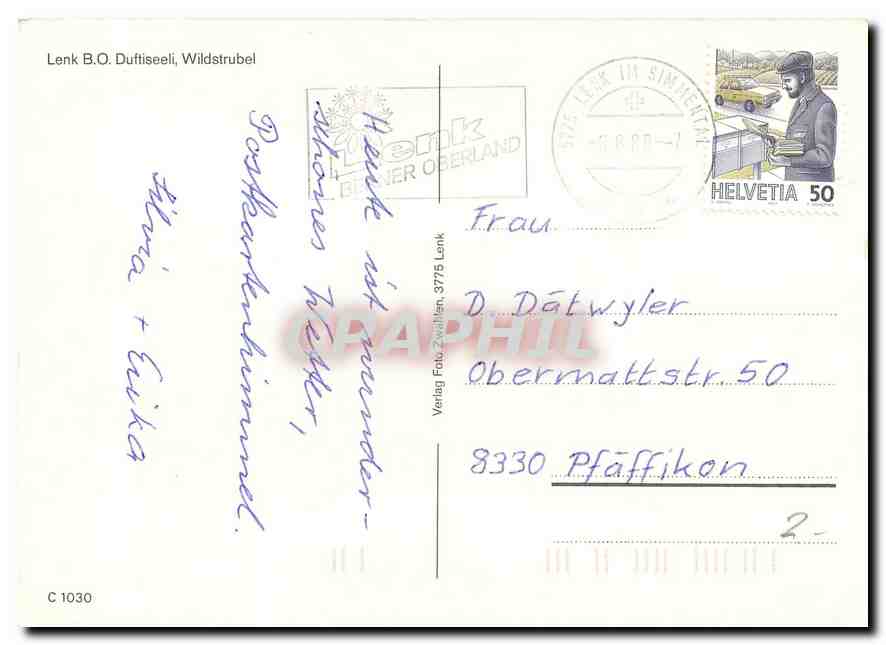 Lenk B.O. Duftiseeli, Wildstrubel
Heute ist wunder-
schönes Wetter,
Postkartenhimmel.
Silvia + Erika
Lenk
BERNER OBERLAND
LENK IM SIMMENTAL
HELVETIA 50
Verlag Foto Zwahlen, 3775 Lenk
Frau
D. Dätwyler
Obermattstr. 50
8330 Pfäffikon
2.-
C 1030
CPAPHIL